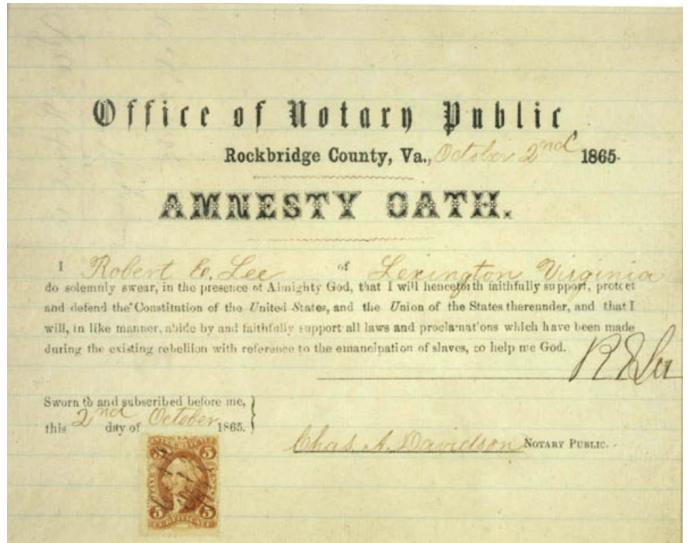 Office of Notary Public
Rockbridge County, Va., October 2nd 1865.
AMNESTY OATH.
I Robert E. Lee of Lexington Virginia
do solemnly swear, in the presence of Almighty God, that I will henceforth faithfully support, protect
and defend the Constitution of the United States, and the Union of the States thereunder, and that I
will, in like manner, abide by and faithfully support all laws and proclamations which have been made
during the existing rebellion with reference to the emancipation of slaves, so help me God.
R E Lee
Sworn to and subscribed before me,
this 2nd day of October 1865.
Chas. A. Davidson NOTARY PUBLIC.
5 5
5 CERTIFICATE 5